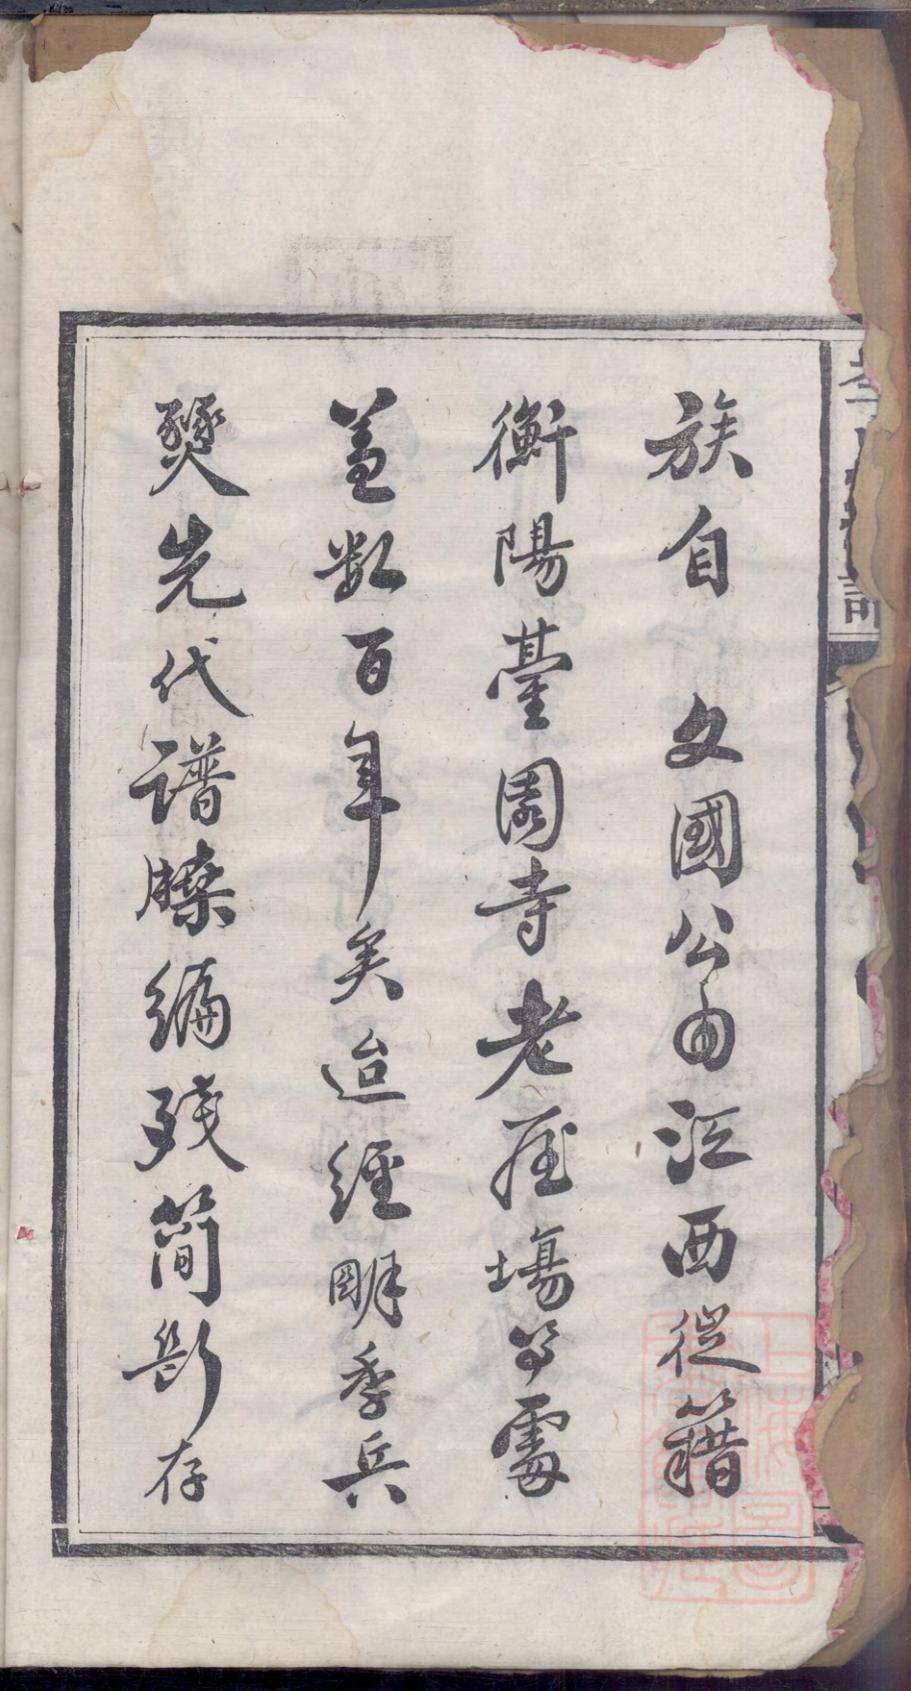 族自 文國公由江西徙籍
衡陽臺園寺老屋場等處
蓋數百年矣迨經明季兵
燹先代譜牒編殘簡斷存